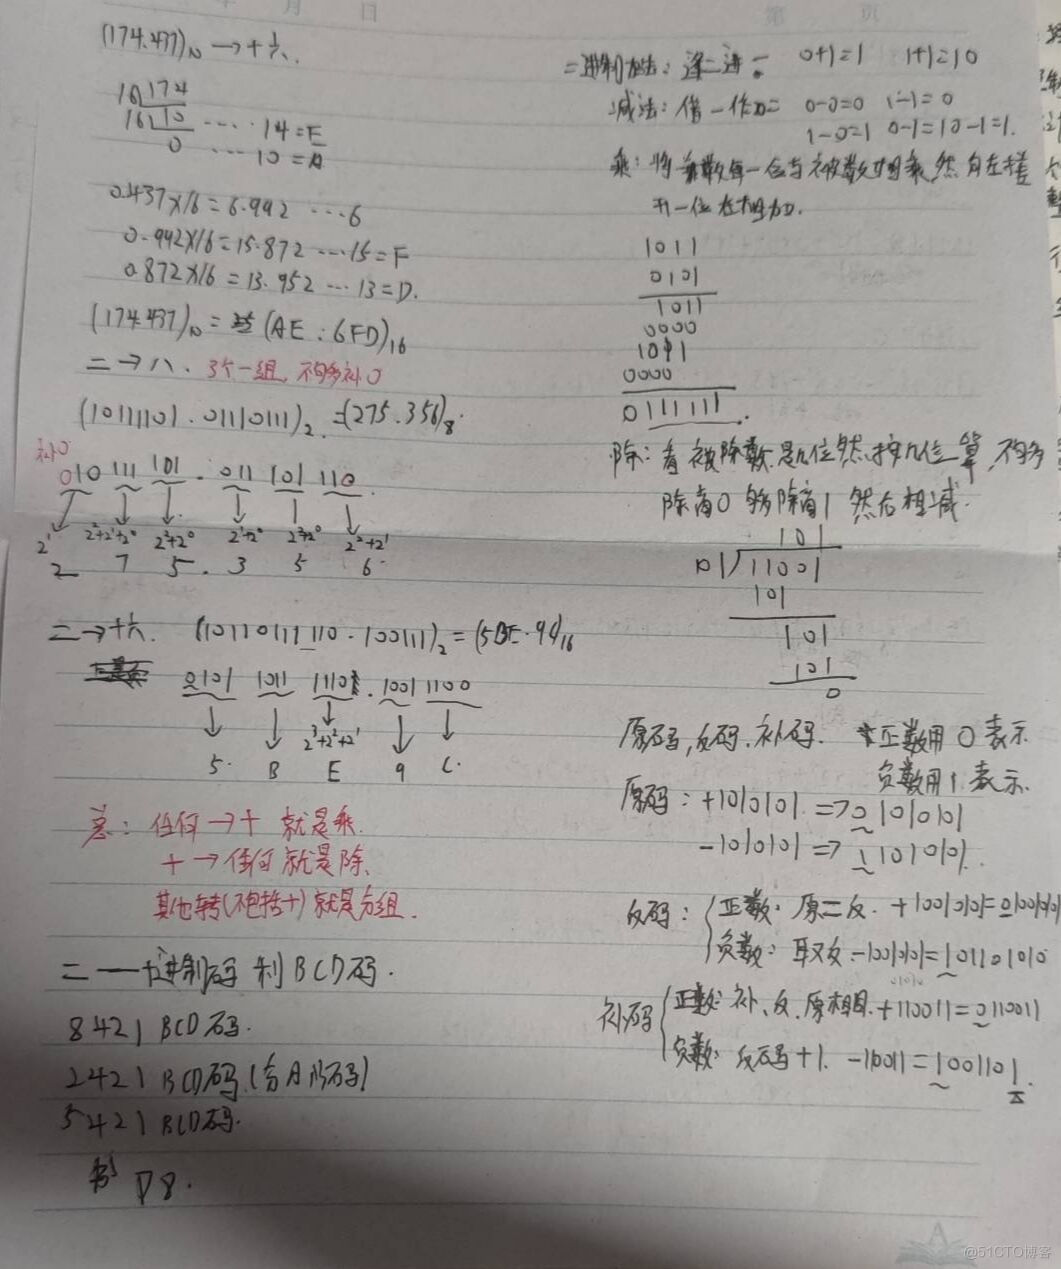 年 月 日
第 页
(174.437)₁₀ → 十六.
16 174
16 10 ···· 14=E
0 ···· 10=A
0.437×16=6.992 ···6
0.992×16=15.872 ···15=F
0.872×16=13.952 ···13=D.
(174.437)₁₀= (AE.6FD)₁₆
二→八. 3个一组,不够补0
(10111101.01110111)₂=(275.356)₈.
补0
010 111 101 . 011 101 110
2¹ 2²+2¹+2⁰ 2²+2⁰ 2¹+2⁰ 2²+2⁰ 2²+2¹
2 7 5 . 3 5 6
二→十六. (10110111110.100111)₂=(5BE.9C)₁₆
0101 1011 1110 . 1001 1100
2³+2²+2¹
5. B E 9 C.
总: 任何→十 就是乘.
十→任何 就是除.
其他转(不包括十)就是分组.
二——十进制码 利BCD码.
8421 BCD码.
2421 BCD码.
5421 BCD码.
书P8.
二进制加法: 逢二进一 0+1=1 1+1=10
减法: 借一作 0-0=0 1-1=0
1-0=1 0-1=10-1=1.
乘: 将乘数每一位与被数相乘,然 向左
一位 在相加.
1011
0101
1011
0000
1011
0000
0111111.
除: 看被除数是几位然.按几位算,不够
除商0 够除商1 然后相减.
101
101 11001
101
101
101
0
原码,反码.补码. 正数用0表示
负数用1表示.
原码: +1010101 => 01010101
-1010101 => 11010101.
反码: 正数: 原=反. +1001010
负数: 取反
补码 正数: 补、反.原相同. +110011=0110011
负数: 反码+1. -110011=1001101.
@51CTO博客